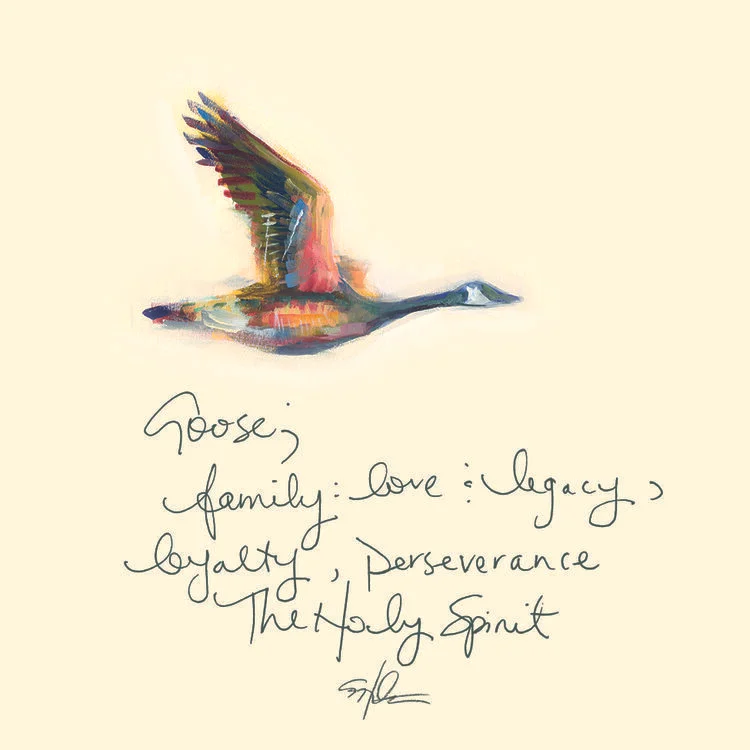 Goose;
family : love : legacy,
loyalty, perseverance
The Holy Spirit